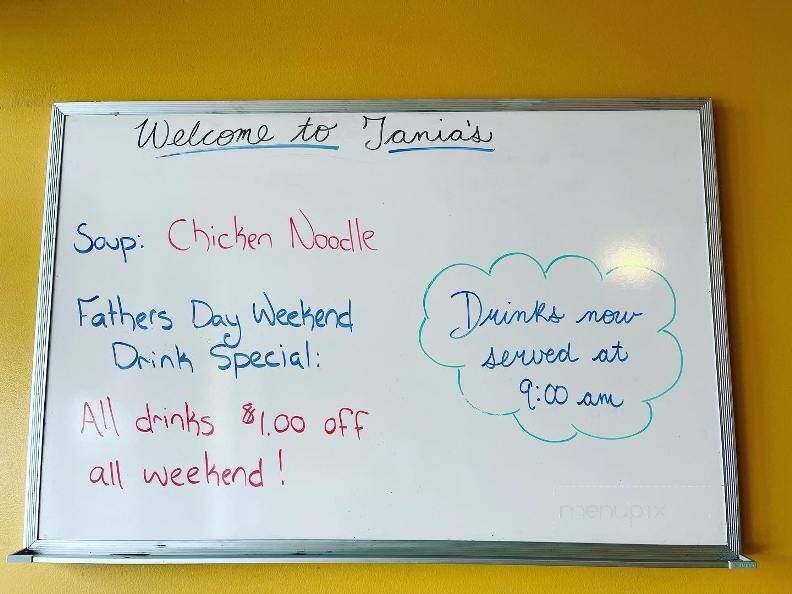 Welcome to Tania's
Soup: Chicken Noodle
Fathers Day Weekend
Drink Special:
All drinks $1.00 off
all weekend!
Drinks now
served at
9:00 am
menupix